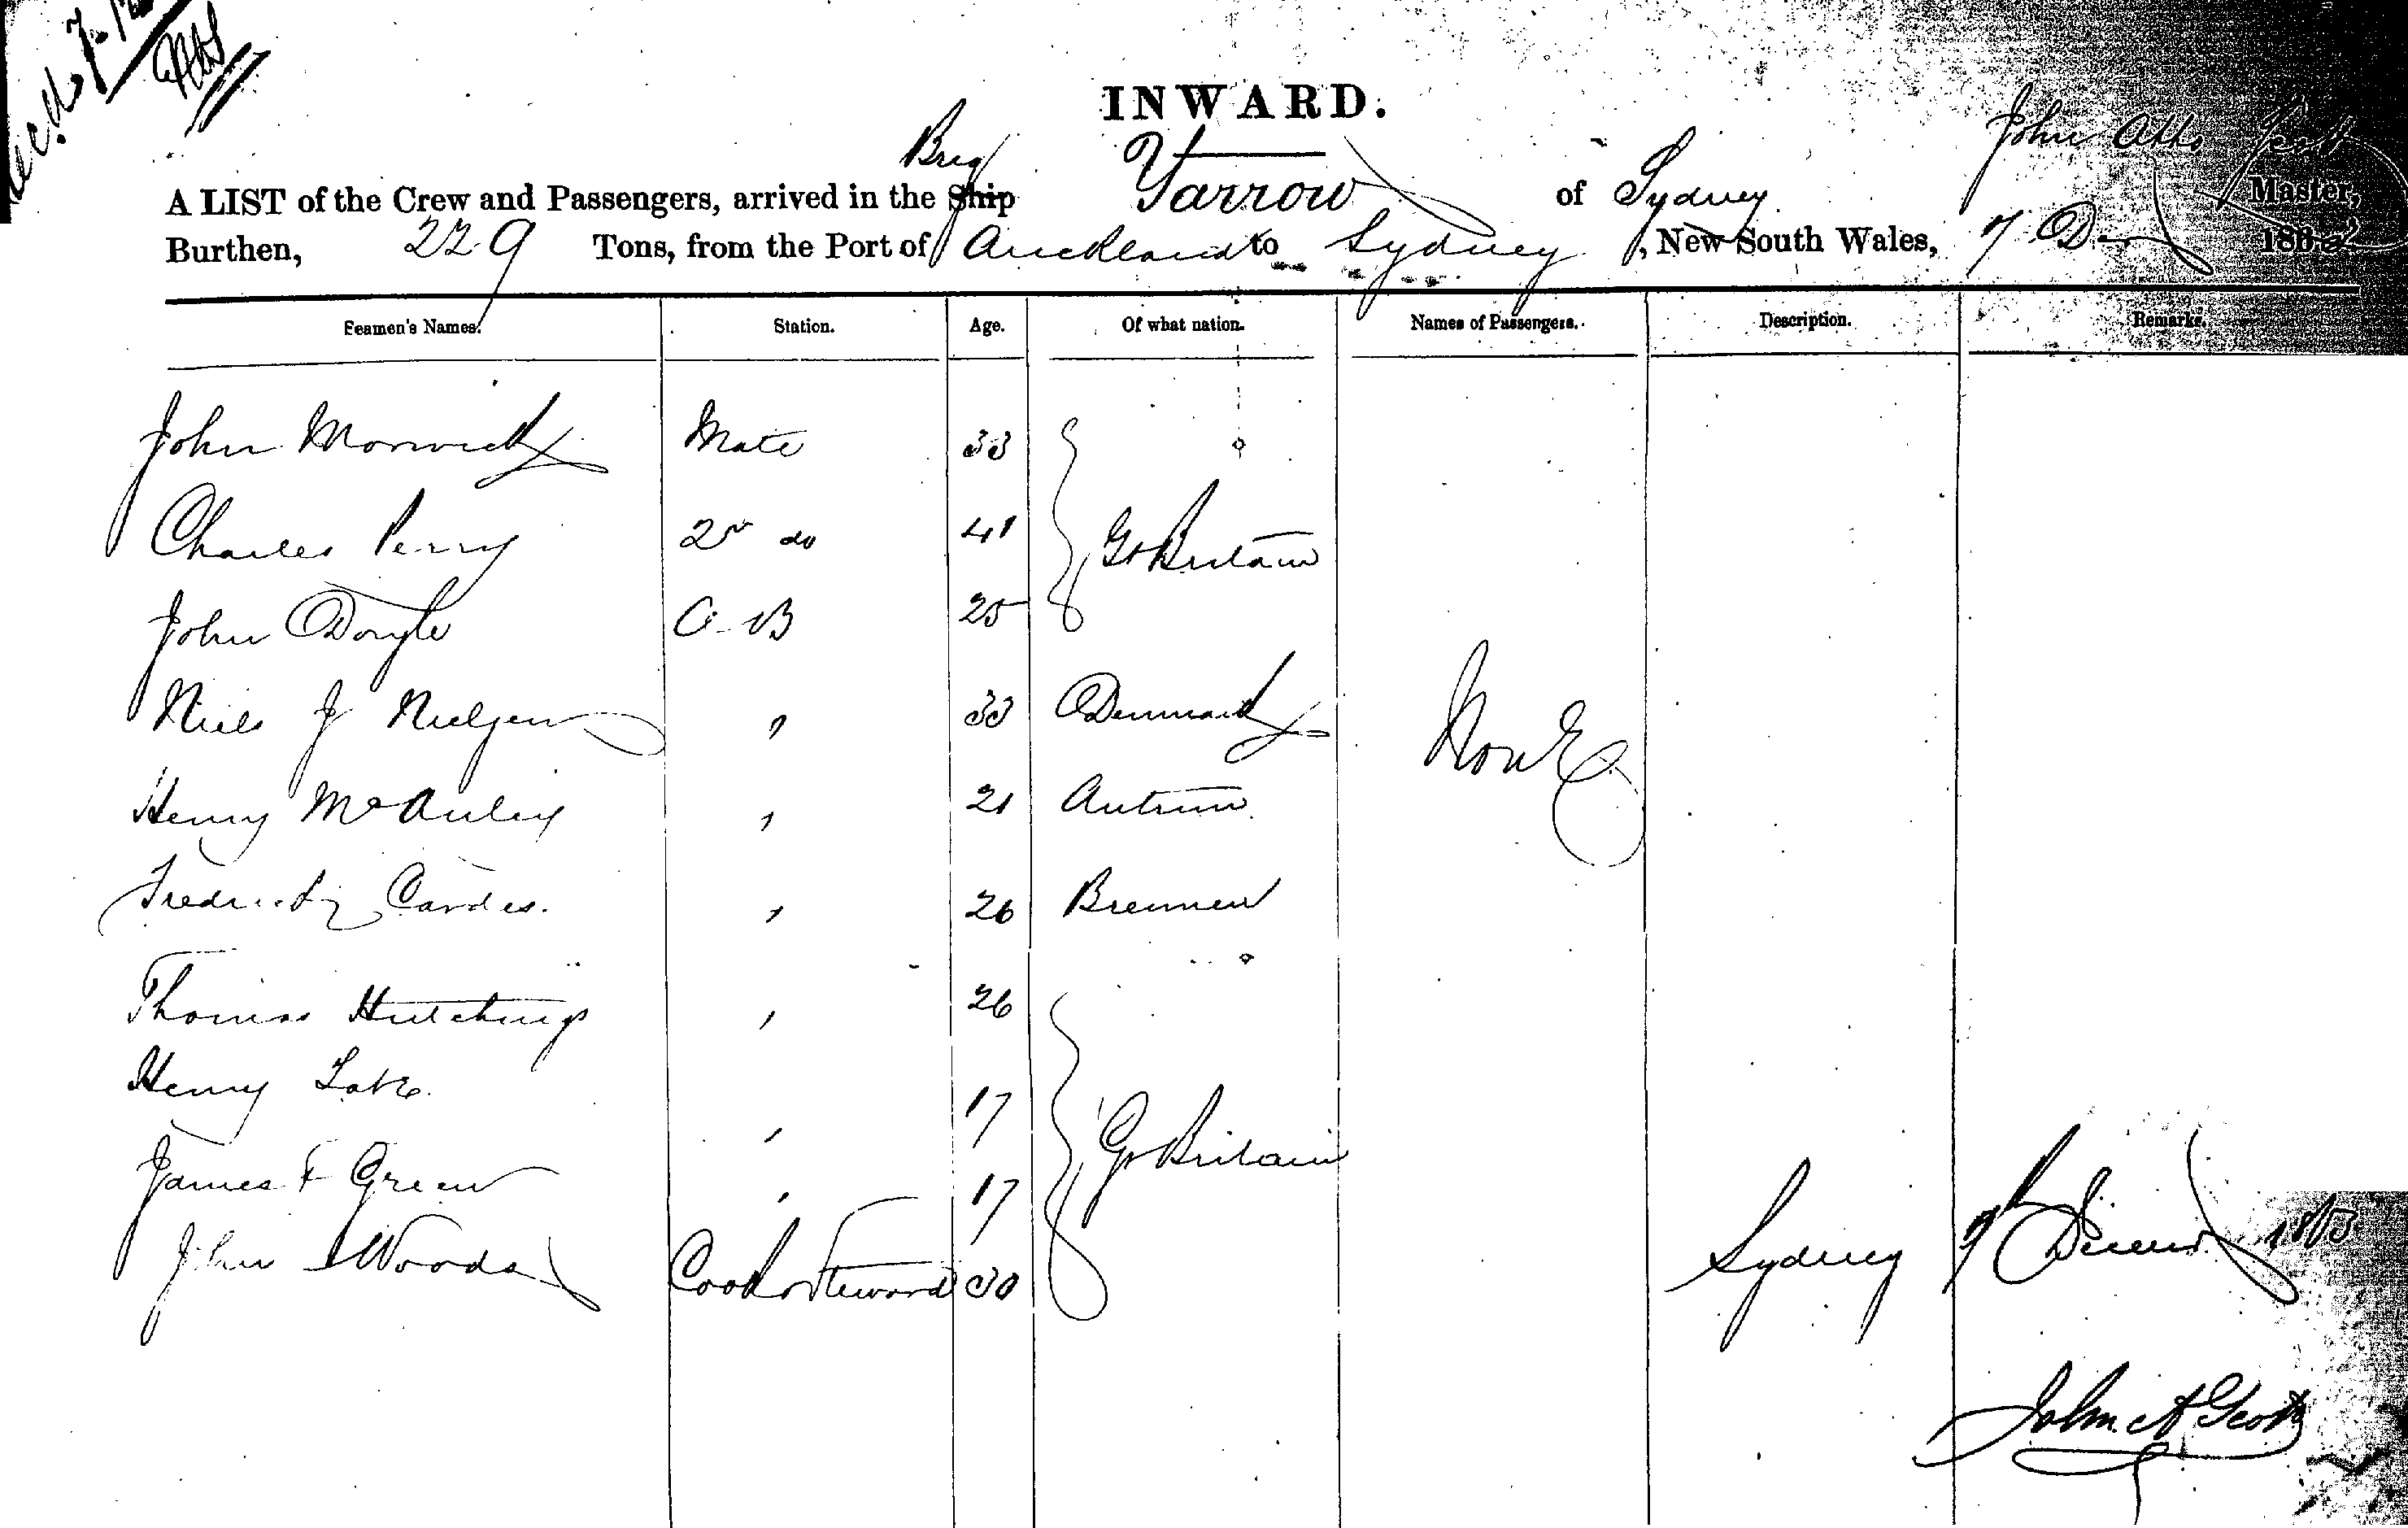 INWARD.
A LIST of the Crew and Passengers, arrived in the Ship Brig Yarrow of Sydney John Scott Master,
Burthen, 229 Tons, from the Port of Auckland to Sydney, New South Wales, 7 Der 186
Seamen's Names. Station. Age. Of what nation. Names of Passengers. Description. Remarks.
John Morwick Mate 33
Charles Perry 2nd do 41 Gt Britain
John Doyle A B 25
Niels J Nielsen " 33 Denmark None
Henry McAuley " 21 Antrim
Frederick Cardes. " 26 Bremen
Thomas Hutchings " 26
Henry Lake " 17
James F Green " 17 Gt Britain
John Woods Cook & Steward 30
Sydney 7th 1863
John A Scott